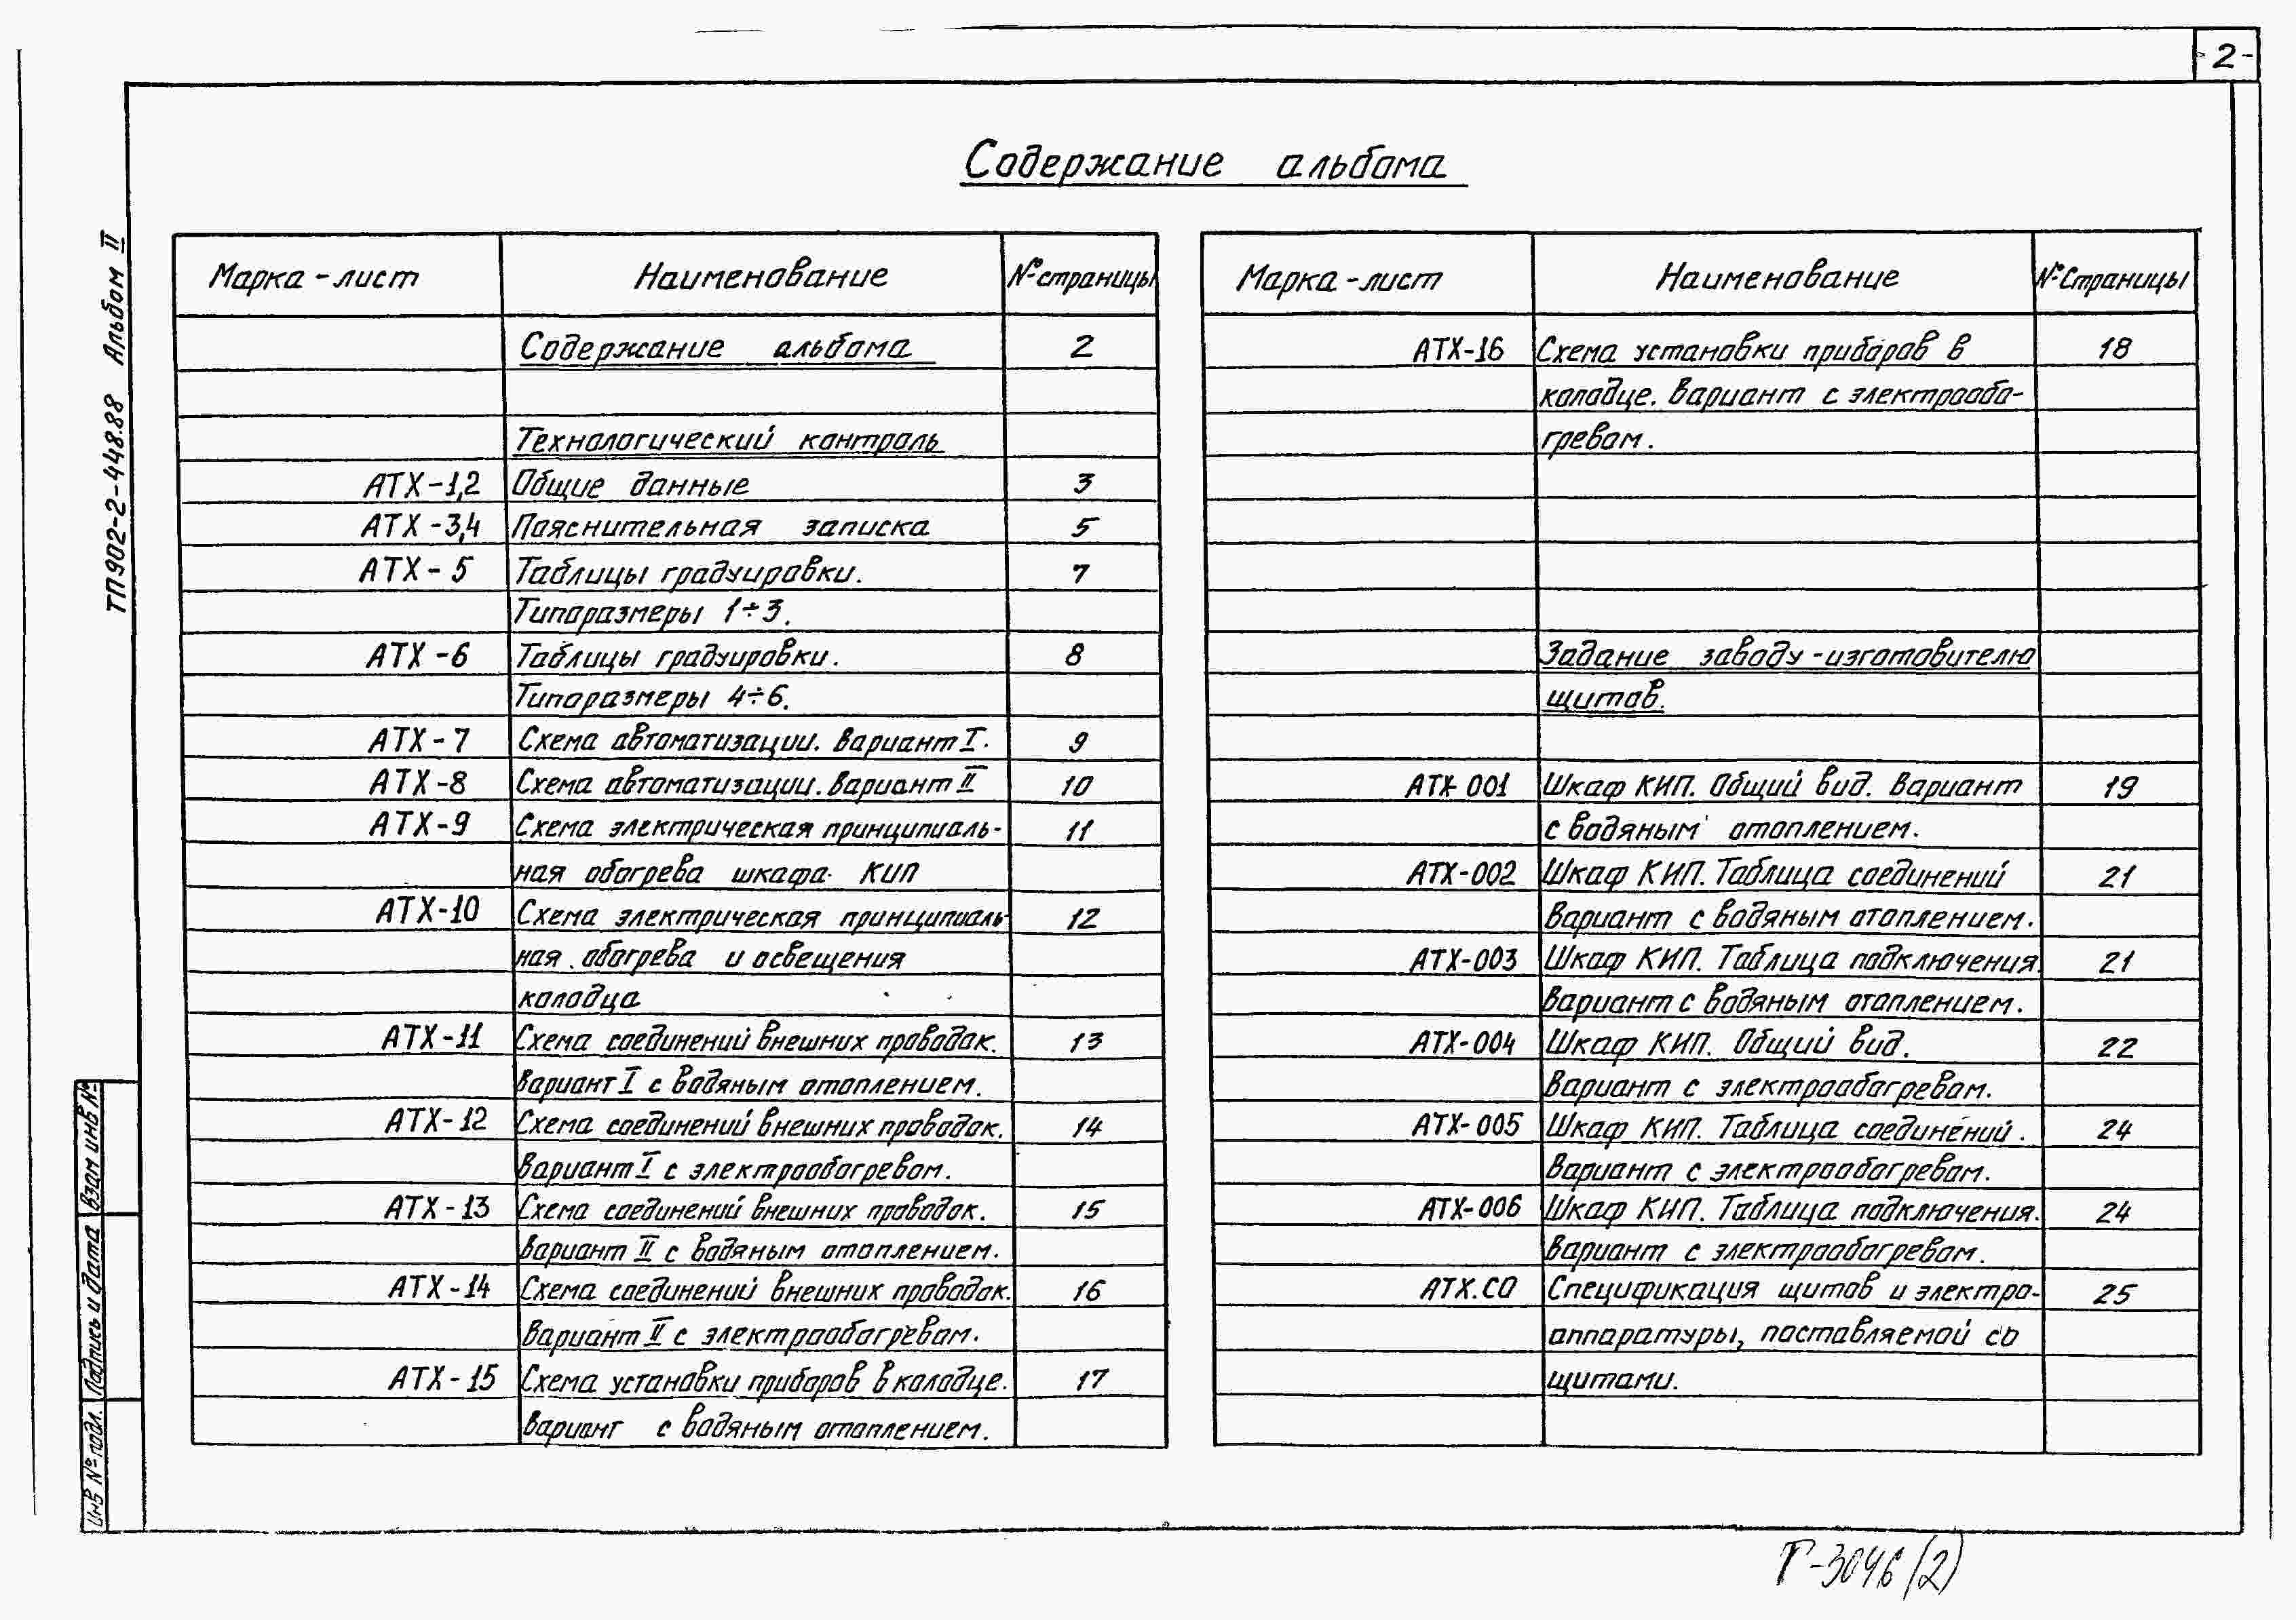 2
Содержание альбома
ТП902-2-448.88 Альбом II
Марка - лист Наименование № страницы
Содержание альбома 2
Технологический контроль
АТХ-1,2 Общие данные 3
АТХ-3,4 Пояснительная записка 5
АТХ-5 Таблицы градуировки. 7
Типоразмеры 1÷3.
АТХ-6 Таблицы градуировки. 8
Типоразмеры 4÷6.
АТХ-7 Схема автоматизации. Вариант I. 9
АТХ-8 Схема автоматизации. Вариант II 10
АТХ-9 Схема электрическая принципиаль- 11
ная обогрева шкафа КИП
АТХ-10 Схема электрическая принципиаль- 12
ная обогрева и освещения
колодца
АТХ-11 Схема соединений внешних проводок. 13
Вариант I с водяным отоплением.
АТХ-12 Схема соединений внешних проводок. 14
Вариант I с электрообогревом.
АТХ-13 Схема соединений внешних проводок. 15
Вариант II с водяным отоплением.
АТХ-14 Схема соединений внешних проводок. 16
Вариант II с электрообогревом.
АТХ-15 Схема установки приборов в колодце. 17
Вариант с водяным отоплением.
Марка - лист Наименование № Страницы
АТХ-16 Схема установки приборов в 18
колодце. Вариант с электрообо-
гревом.
Задание заводу-изготовителю
щитов.
АТХ-001 Шкаф КИП. Общий вид. Вариант 19
с водяным отоплением.
АТХ-002 Шкаф КИП. Таблица соединений 21
Вариант с водяным отоплением.
АТХ-003 Шкаф КИП. Таблица подключения 21
Вариант с водяным отоплением.
АТХ-004 Шкаф КИП. Общий вид. 22
Вариант с электрообогревом.
АТХ-005 Шкаф КИП. Таблица соединений. 24
Вариант с электрообогревом.
АТХ-006 Шкаф КИП. Таблица подключения. 24
Вариант с электрообогревом.
АТХ.СО Спецификация щитов и электро- 25
аппаратуры, поставляемой со
щитами.
Инв № подл. Подпись и дата Взам инв №
Т-3046 (2)